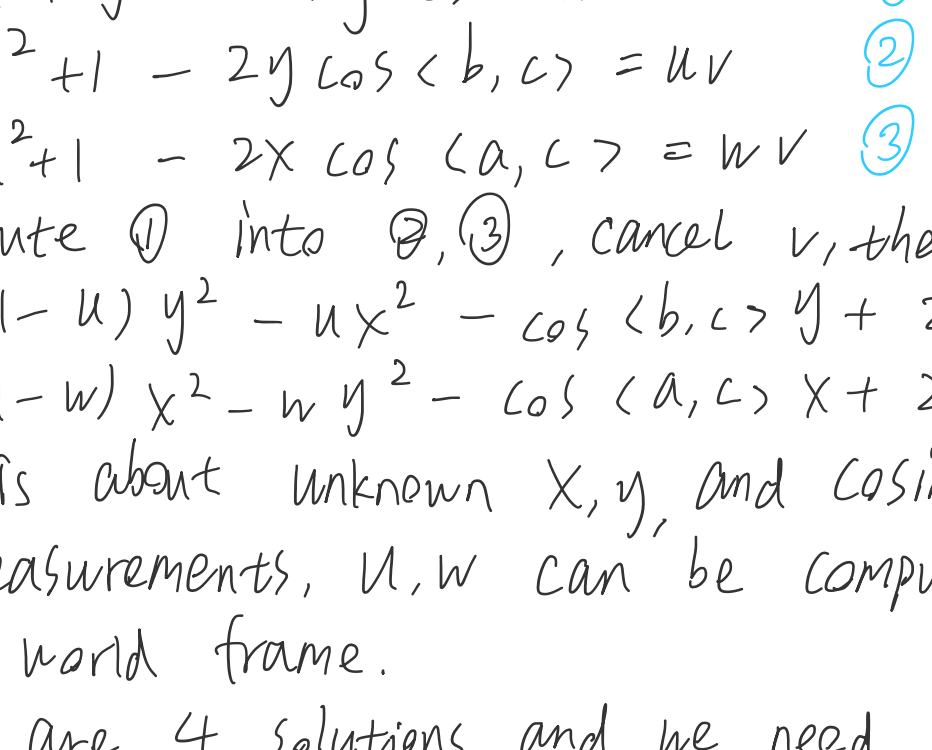 ² +1 - 2y cos<b, c> = uv ②
²+1 - 2x cos <a, c> = wv ③
ute ① into ②, ③, cancel v, the
1-u) y² - ux² - cos <b, c> y + 2
-w) x² - wy² - cos <a, c> x + 2
is about unknown x, y, and cosi
easurements, u, w can be compu
world frame.
are 4 solutions and we need